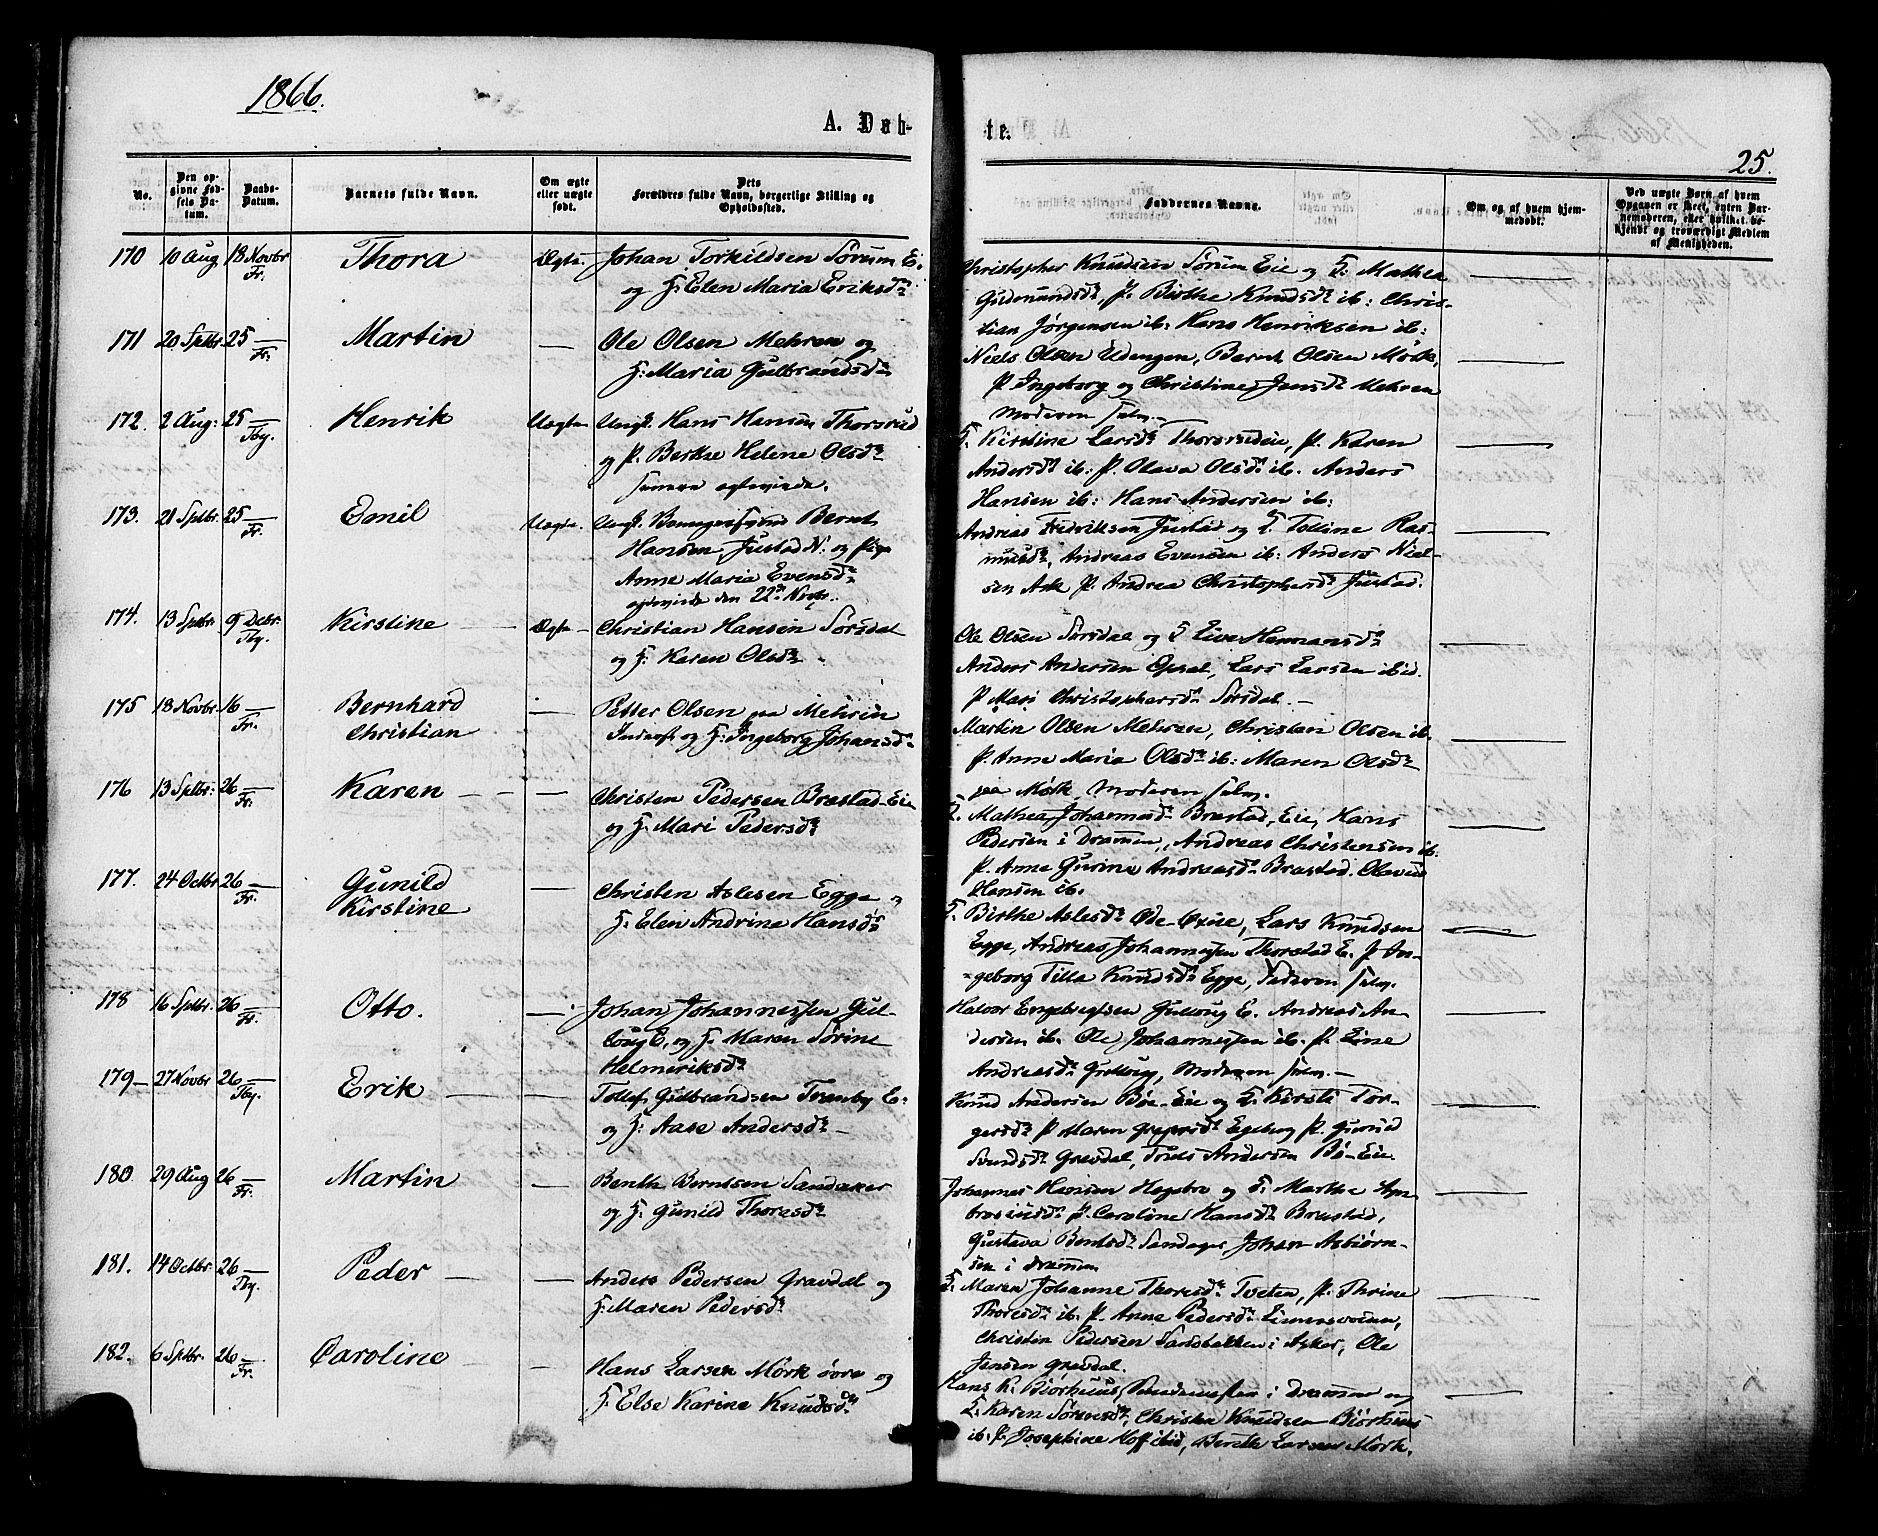 1866.
A. Døb-
te.
25.
No.
Den op-
givne Fød-
sels Da-
tum.
Daabs-
Datum.
Barnets fulde Navn.
Om ægte
eller uægte
født.
Dets
Forældres fulde Navn, borgerlige Stilling og
Opholdssted.
Faddernes Navne.
Om og af hvem hjem-
medøbt.
Ved uægte Børn af hvem
Opgaven er skeet, enten Bar-
nemoderen, eller hvilket be-
kjendt og troværdigt Medlem
af Menigheden.
170 10 Aug 18 Novbr Fr. Thora Ægte. Johan Torkildsen Sørum E.
og H: Elen Maria Eriksdr
Christopher Knudsen Sørum Eie og H. Mathea
Gudmundsdr, P. Birthe Knudsdr ib: Chris-
tian Jørgensen ib: Hans Henriksen ib:
171 20 Sptbr. 25 — Fr. Martin — Ole Olsen Mehren og
H: Maria Gulbrandsdr
Niels Olsen Udengen, Bernt Olsen Mørk,
P. Ingeborg og Christine Jensdr Mehren
Moderen selv.—
172. 2 Aug: 25 — Tbg. Henrik Uægte Ungk. Hans Hansen Thorsrud
og P. Berthe Helene Olsdr
senere egteviede.
H. Kirstine Larsdr Thorsrudeie, P. Karen
Andersdr ib: P. Olava Olsdr ib. Anders
Hansen ib: Hans Andersen ib:
173. 21 Sptbr. 25 — Fr. Emil Uægte Ungk. Bernt
Hansen Justad N. og Pige
Anne Maria Evensdr
egteviede den 22de Novbr.
Andreas Fredriksen Justad og H. Tolline Ras-
musdr, Andreas Evensen ib: Anders Niel-
sen Ask P. Andrea Christophersdr Justad.
174. 13 Sptbr. 9 Decbr. Tbg. Kirstine — Ægte — Christian Hansen Sørsdal
og H. Karen Olsdr
Ole Olsen Sørsdal og H Live Hermansdr
Anders Andersen Opsal, Lars Larsen ibid.
P Mari Christophersdr Sørsdal.—
175 18 Novbr 16 — Fr. Bernhard
Christian — Petter Olsen paa Mehren
Inderst og H: Ingeborg Johansdr
Martin Olsen Mehren, Christian Olsen ib.
P. Anne Maria Olsdr ib: Maren Olsdr
paa Mørk, Moderen selv.
176 13 Sptbr: 26 — Fr: Karen — — Christen Pedersen Brastad-Eie
og H: Mari Pedersdr
H. Mathea Johannesdr Brastad, Eie, Hans
Pedersen i Drammen, Andreas Christensen ib.
P. Anne Gurine Andreasdr Brastad. Olavus
Hansen ib.
177. 24 Octbr 26 — Fr. Gunild
Kirstine — Christen Aslesen Egge og
H. Elen Andrine Hansdr
H. Birthe Aslesdr Øde-Oxne, Lars Knudsen
Egge, Andreas Johannessen Thorstad E. P In-
geborg Tilla Knudsdr Egge, Faderen selv.
178 16 Sptbr. 26 — Fr. Otto. — Johan Johannessen Gul-
laug E, og H. Maren Sørine
Helmeriksdr
Halvor Engebregtsen Gullaug E. Andreas An-
dersen ib. Ole Johannessen ib. P. Line
Andreasdr Gullaug, Moderen selv.—
179— 27 Novbr 26 — Tbg. Erik — — Tollef Gulbrandsen Tranby E:
og H: Aase Andersdr—
Knud Andersen Bøe-Eie og H. Kirsti Tor-
gersdr P Maren Gregersdr Egeberg P. Gunild
Svendsdr Gravdal, Truls Andersen Bø-Eie.
180 29 Aug 26 — Fr. Martin — Bent Berntsen Sandaker
og H. Gunild Thoresdr
Johannes Hansen Hogsbro og H. Marthe Am-
brosiusdr P. Caroline Hansdr Brastad,
Gustava Bentsdr Sandager Johan Asbiørn-
sen i Drammen
181. 14 Octbr. 26 — Tbg. Peder — — Anders Pedersen Gravdal og
H. Maren Pedersdr
H. Maren Johanne Thoresdr Tveten, P. Thrine
Thoresdr ib. P. Anne Pedersdr
Christen Pedersen i Asker, Ole
Jensen Gravdal.
182. 6 Sptbr. 26 — Fr. Caroline — — Hans Larsen Mørk øvre og
H. Else Karine Knudsdr
Hans K. Biørhuus, i Drammen og
H. Karen Sørensdr, Christen Knudsen Biørhuus
ib. P. Josephine Hoff ibid, Larsen Mørk.